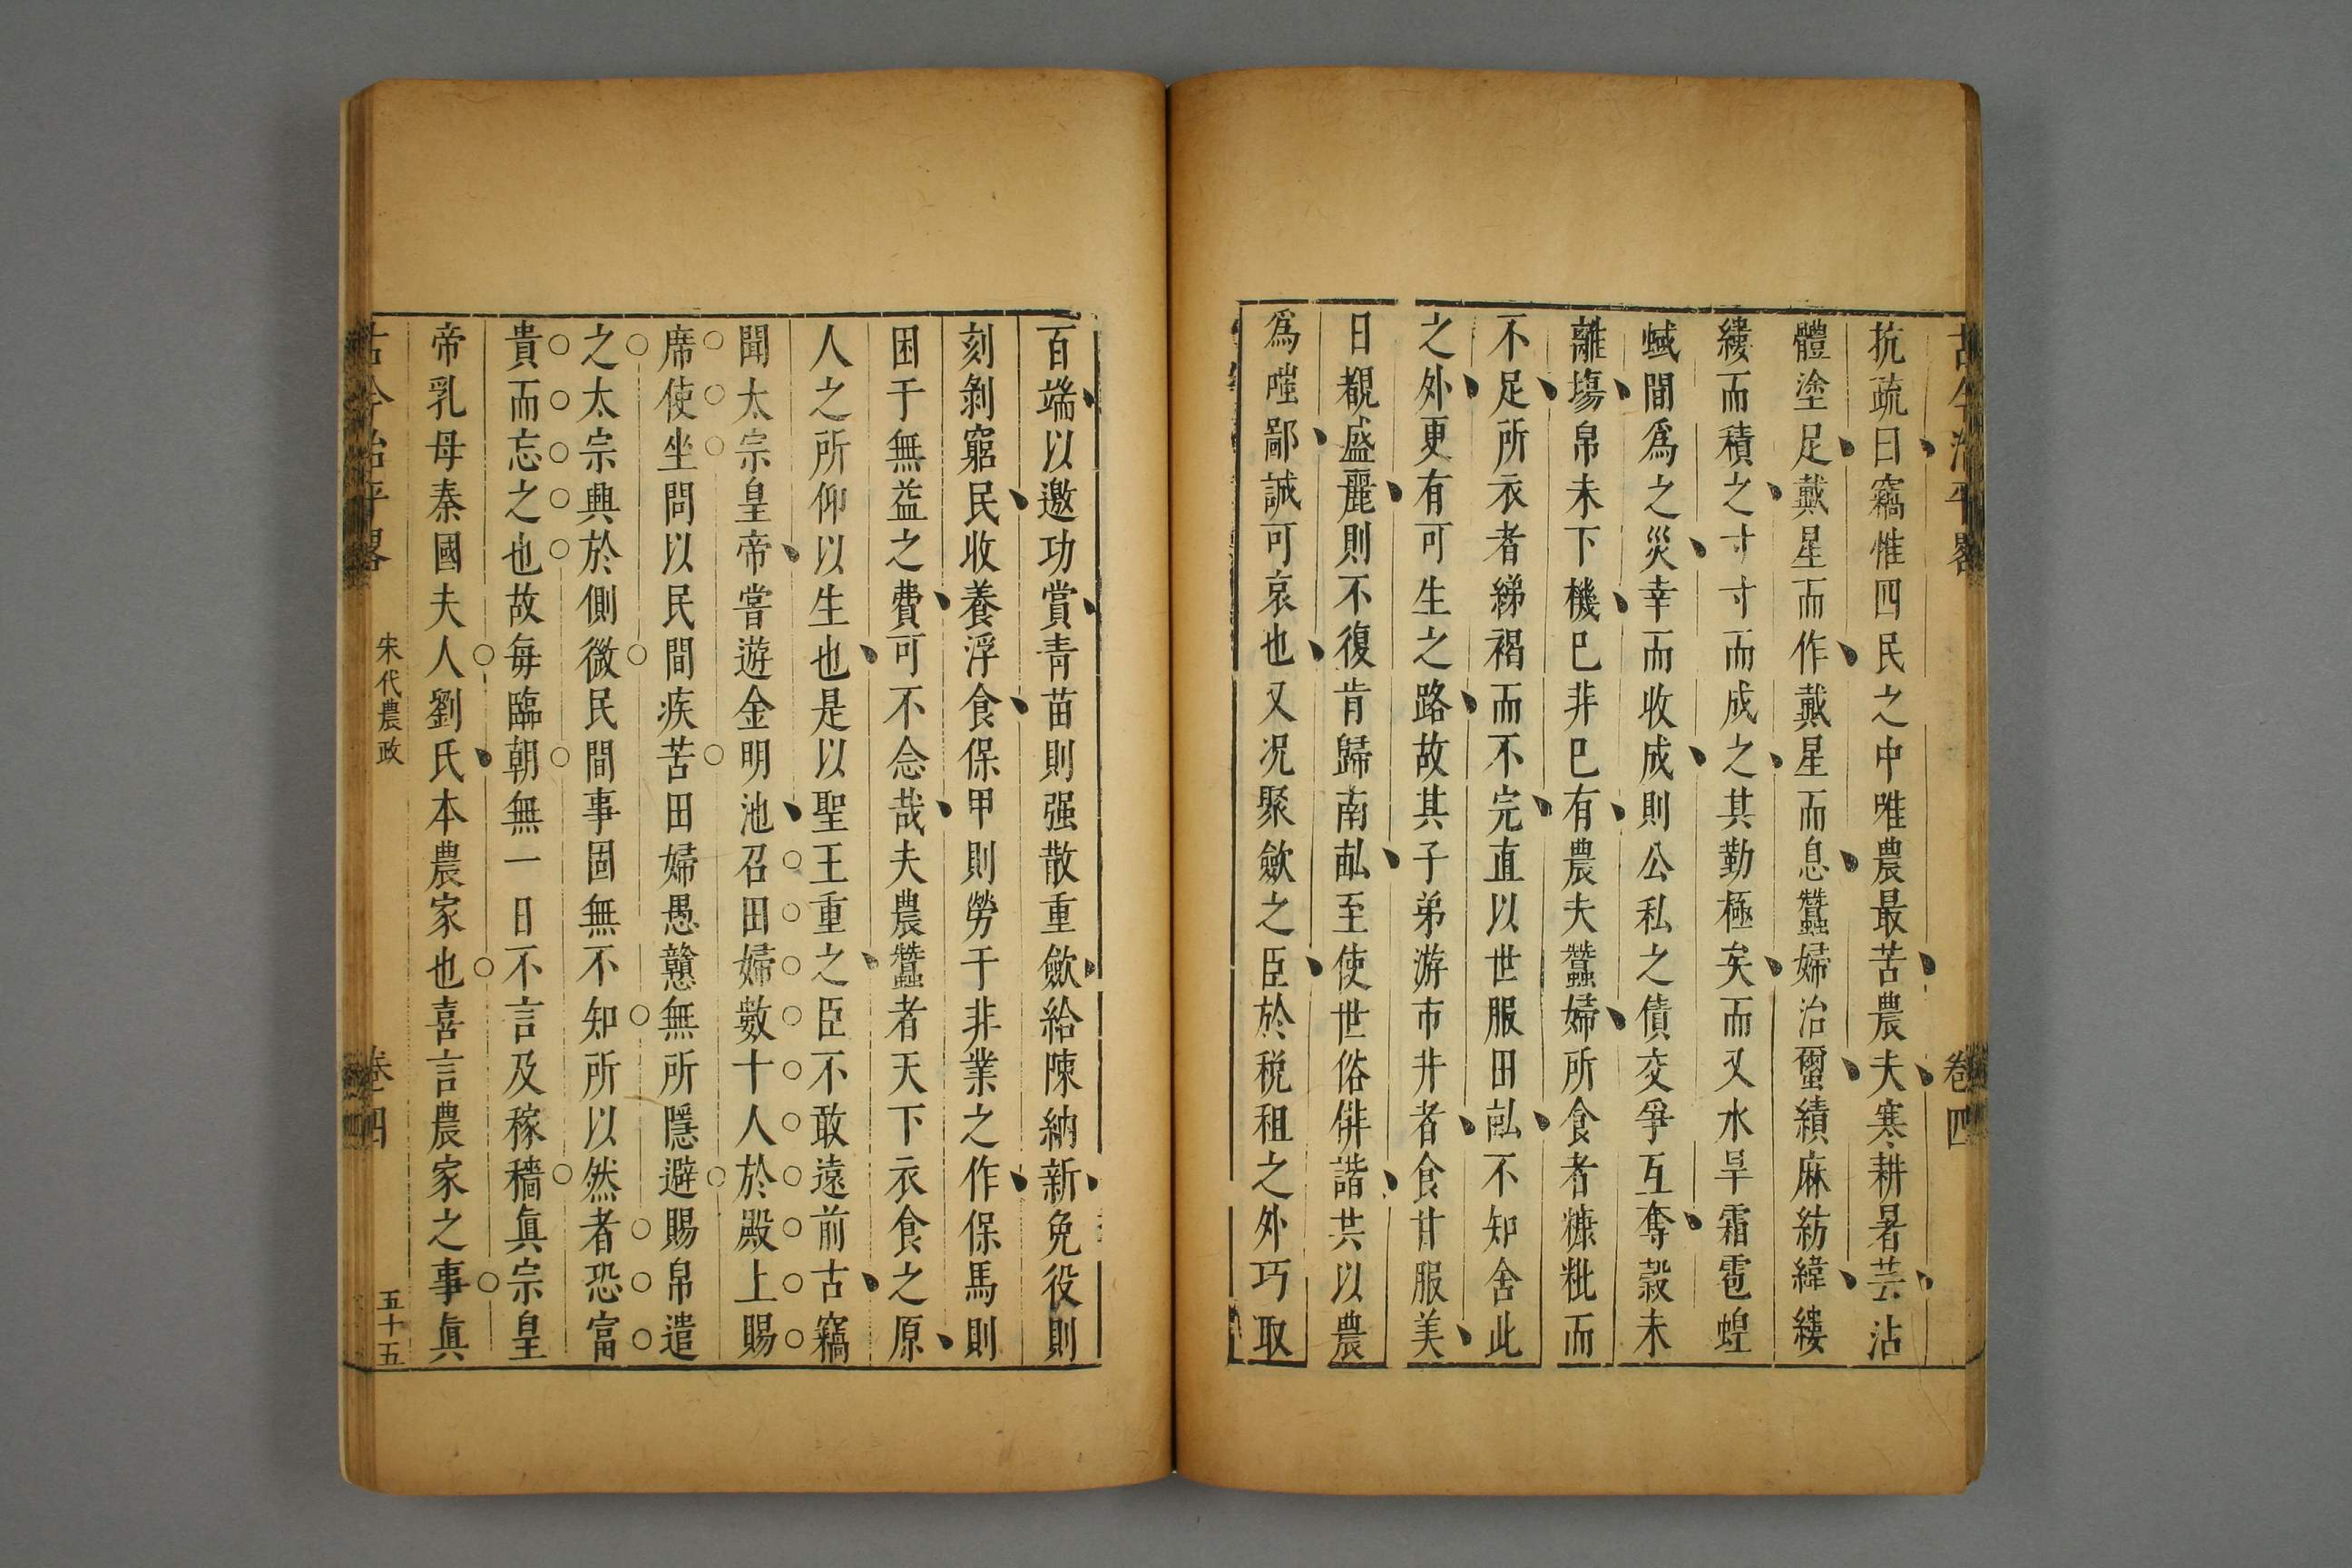 古今治平畧 卷四
抗疏曰竊惟四民之中唯農最苦農夫寒耕暑芸沾
體塗足戴星而作戴星而息蠶婦治蠒績麻紡緯縷
縷而積之寸寸而成之其勤極矣而又水旱霜雹蝗
蜮間爲之災幸而收成則公私之債交爭互奪穀未
離塲帛未下機已非已有農夫蠶婦所食者糠粃而
不足所衣者綈褐而不完直以世服田畝不知舍此
之外更有可生之路故其子弟游市井者食甘服美
日覩盛麗則不復肯歸南畝至使世俗俳諧共以農
爲嗤鄙誠可哀也又况聚歛之臣於稅租之外巧取
百端以邀功賞靑苗則强散重歛給陳納新免役則
刻剝窮民收養浮食保甲則勞于非業之作保馬則
困于無益之費可不念哉夫農蠶者天下衣食之原
人之所仰以生也是以聖王重之臣不敢遠前古竊
聞太宗皇帝嘗遊金明池召田婦數十人於殿上賜
席使坐問以民間疾苦田婦愚戇無所隱避賜帛遣
之太宗興於側微民間事固無不知所以然者恐富
貴而忘之也故每臨朝無一日不言及稼穡眞宗皇
帝乳母秦國夫人劉氏本農家也喜言農家之事眞
古今治平畧 宋代農政 卷四 五十五